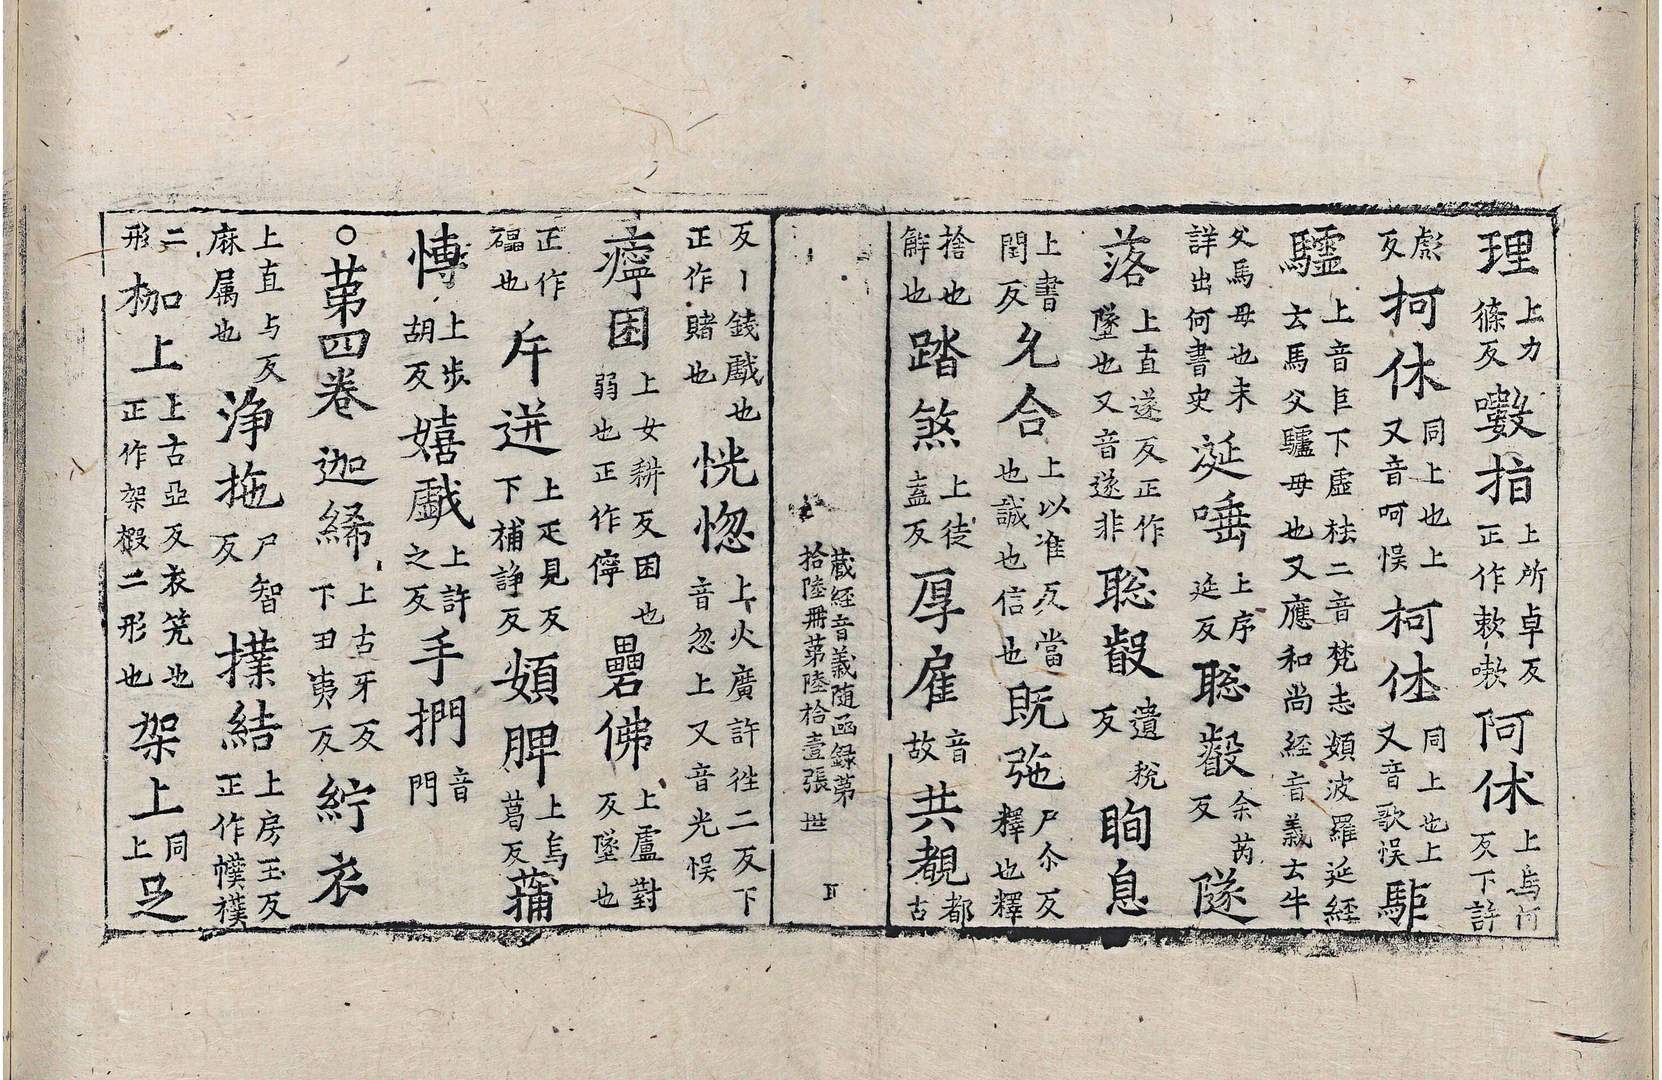 理上力篠反 𭊼指上所卓反正作𣤶嗽 阿𠇾上烏何反下許
彪反 抲休同上也上又音呵悮 柯㑅同上也上又音歌悮 駏
驉上音巨下虛㭕二音梵志頞波羅延經云馬父驢母也又應和尚經音義云牛
父馬母也未詳出何書史 涎唾上序延反 聡叡余芮反 隧
落上直遂反正作墜也又音遂非 聡叡遺稅反 眴息
上書閏反 允合上以准反當也誠也信也 既𢐂尸尒反釋也釋
捨也解也 踏煞上徒盍反 厚雇音故 共覩都古
藏經音義随函録第拾陸冊第陸拾壹張 世
反丨錢戲也正作賭也 恍惚上火廣許往二反下音忽上又音光悮
㿦困上女耕反困也弱也正作儜 礨佛上盧對反墜也
正作礧也 斥逬上疋見反下補諍反 頞脾上烏葛反 蒱
愽上步胡反 嬉戲上許之反 手捫音門
○第四卷 迦絺上古牙反下丑夷反 紵衣
上直与反麻属也 浄拖尸智反 撲結上房玉反正作幞襆
二形 枷上上古亞反衣笐也正作架椴二形也 架上同上 足